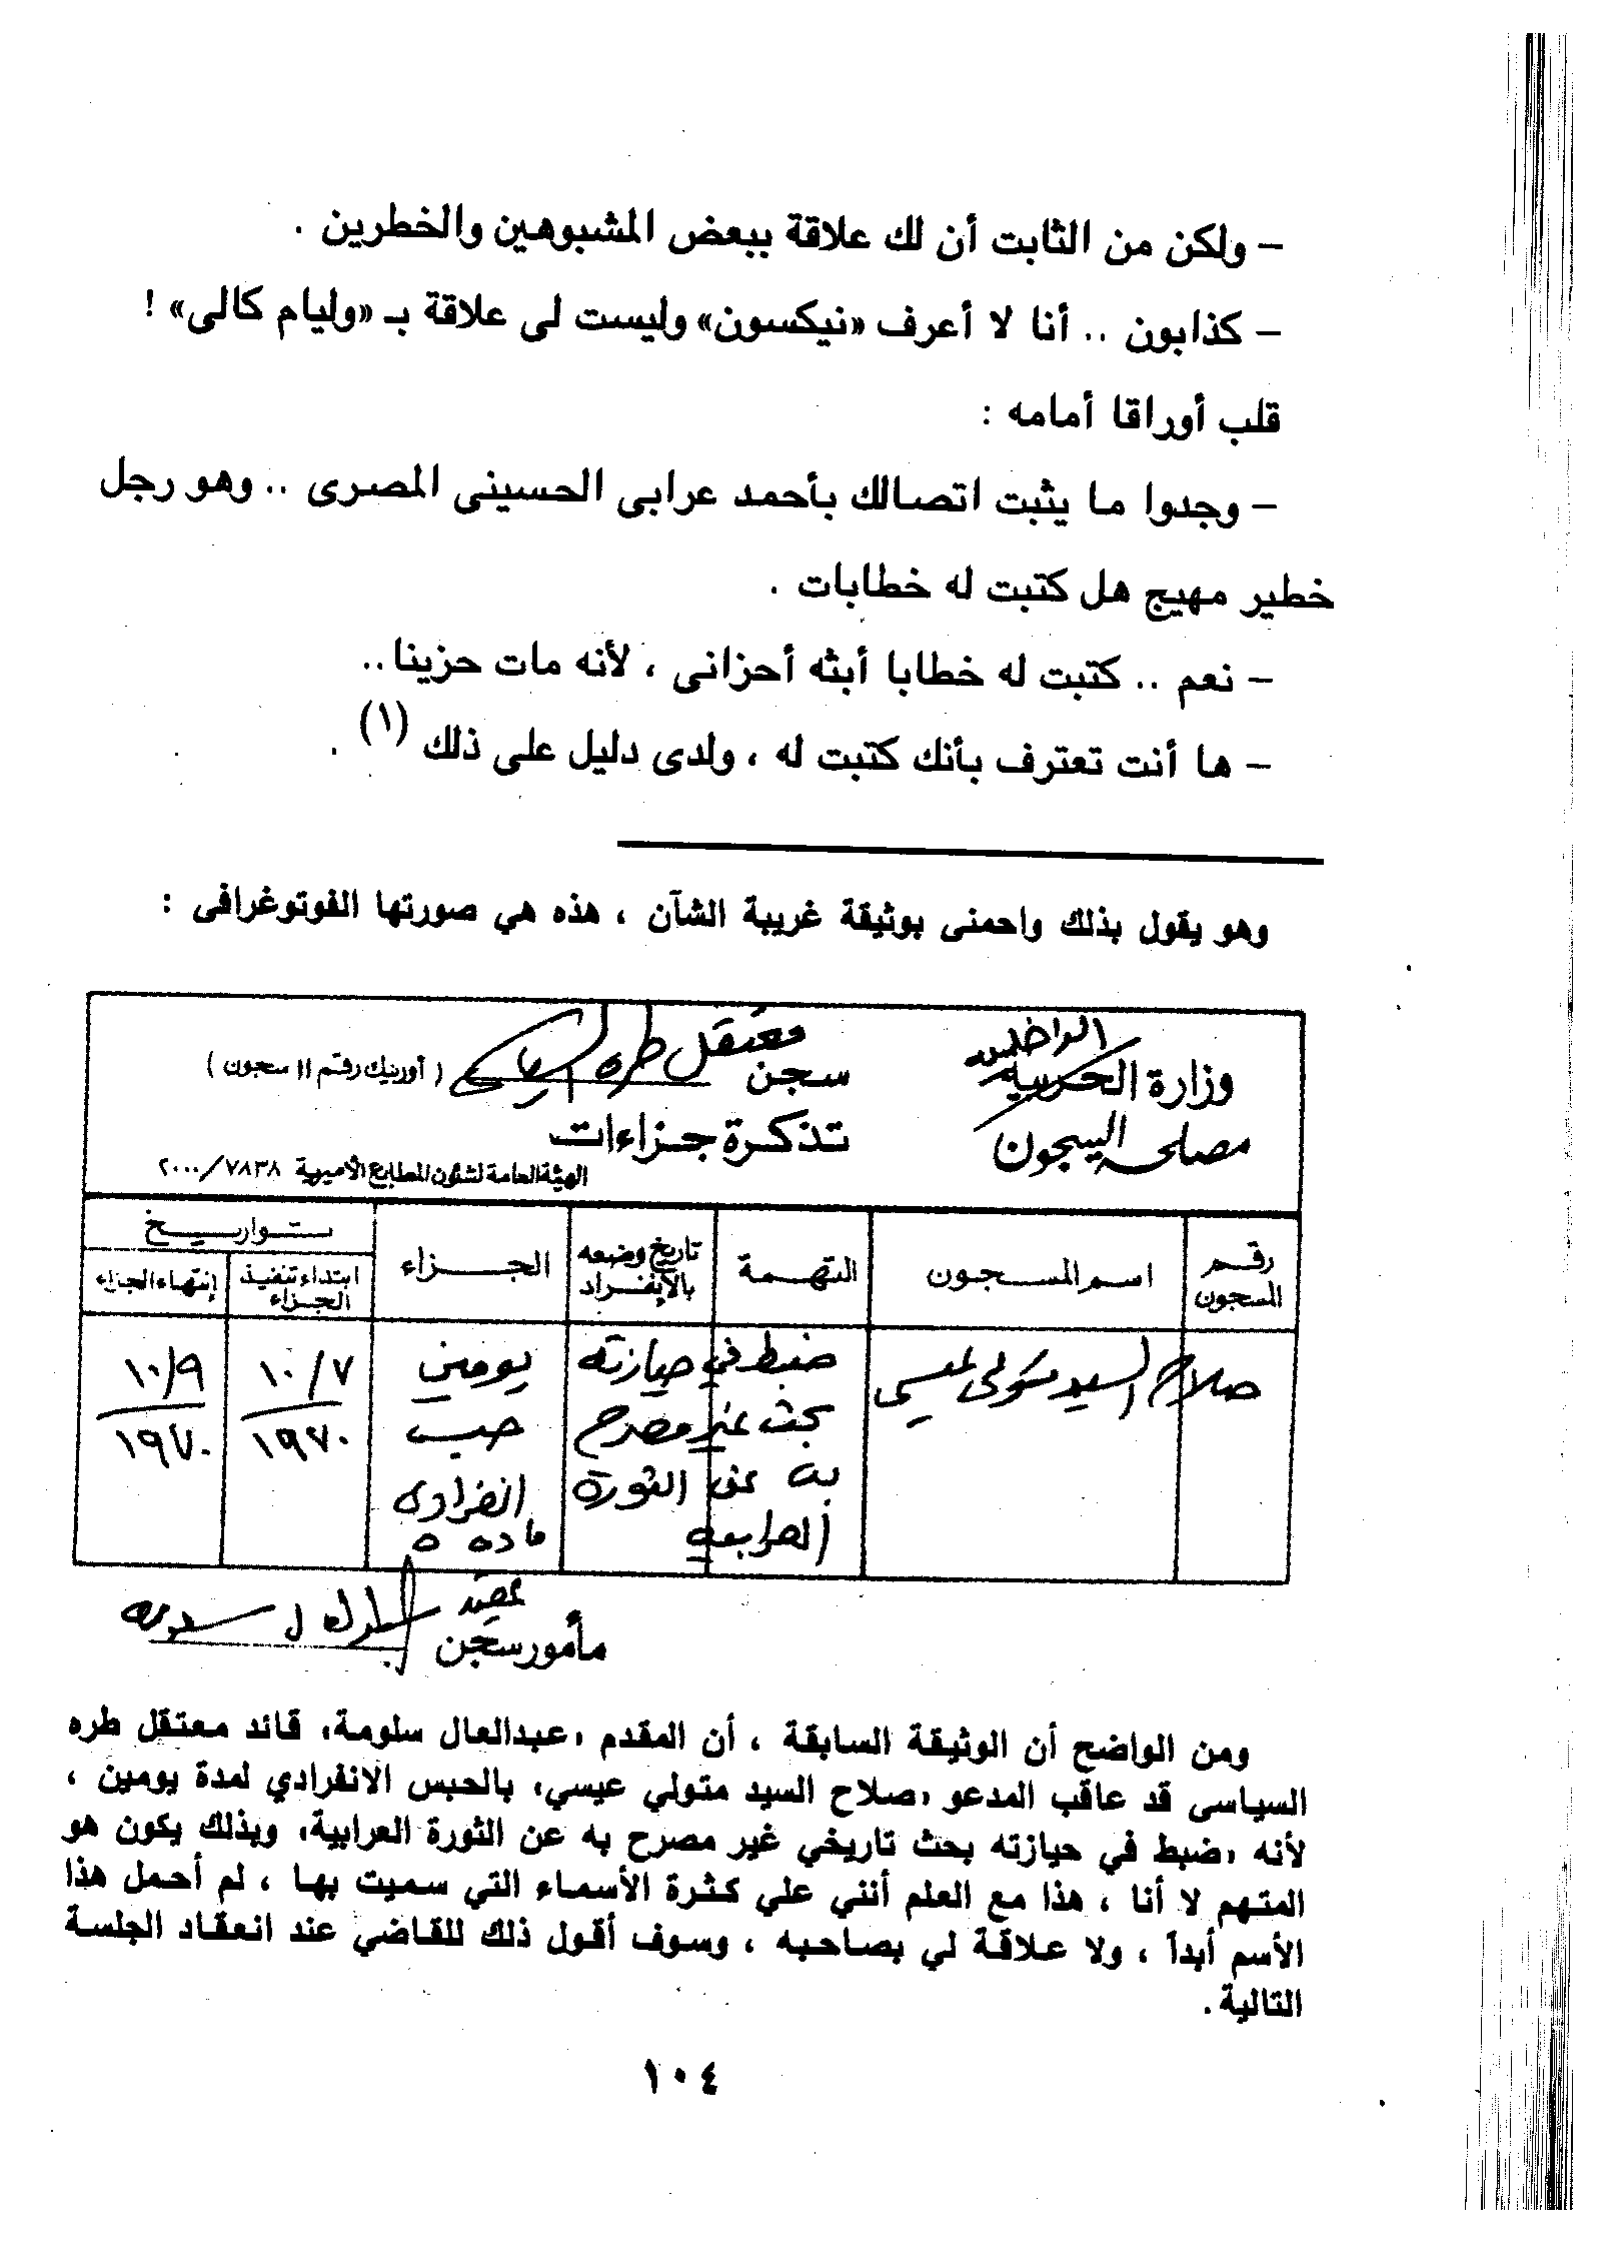 – ولكن من الثابت أن لك علاقة ببعض المشبوهين والخطرين .
– كذابون .. أنا لا أعرف «نيكسون» وليست لى علاقة بـ «وليام كالى» !
قلب أوراقا أمامه :
– وجدوا ما يثبت اتصالك بأحمد عرابى الحسينى المصرى .. وهو رجل
خطير مهيج هل كتبت له خطابات .
– نعم .. كتبت له خطابا أبثه أحزانى ، لأنه مات حزينا..
– ها أنت تعترف بأنك كتبت له ، ولدى دليل على ذلك (١) .
وهو يقول بذلك واحمنى بوثيقة غريبة الشآن ، هذه هي صورتها الفوتوغرافى :
الداخلية
وزارة الحربية
مصلحة السجون
معتقل طره السياسي
سجن
(أورنيك رقم ١١ سجون)
تذكرة جزاءات
الهيئة العامة لشئون المطابع الأميرية ٧٨٣٨/٢٠٠٠
رقم المسجون
اسم المسجون
التهمة
تاريخ وضعه بالإنفراد
الجزاء
تواريخ
ابتداء تنفيذ الجزاء
إنتهاء الجزاء
صلاح السيد متولى عيسى
ضبط في حيازته
بحث غير مصرح
به عن الثورة
العرابية
يومين
حبس
انفرادى
مادة ٥
١٠/٧
١٩٧٠
١٠/٩
١٩٧٠
مأمور سجن
ومن الواضح أن الوثيقة السابقة ، أن المقدم ،عبدالعال سلومة، قائد معتقل طره
السياسى قد عاقب المدعو ،صلاح السيد متولي عيسي، بالحبس الانفرادي لمدة يومين ،
لأنه ،ضبط في حيازته بحث تاريخي غير مصرح به عن الثورة العرابية، وبذلك يكون هو
المتهم لا أنا ، هذا مع العلم أنني علي كثرة الأسماء التي سميت بها ، لم أحمل هذا
الأسم أبداً ، ولا علاقة لي بصاحبه ، وسوف أقول ذلك للقاضي عند انعقاد الجلسة
التالية .
١٠٤